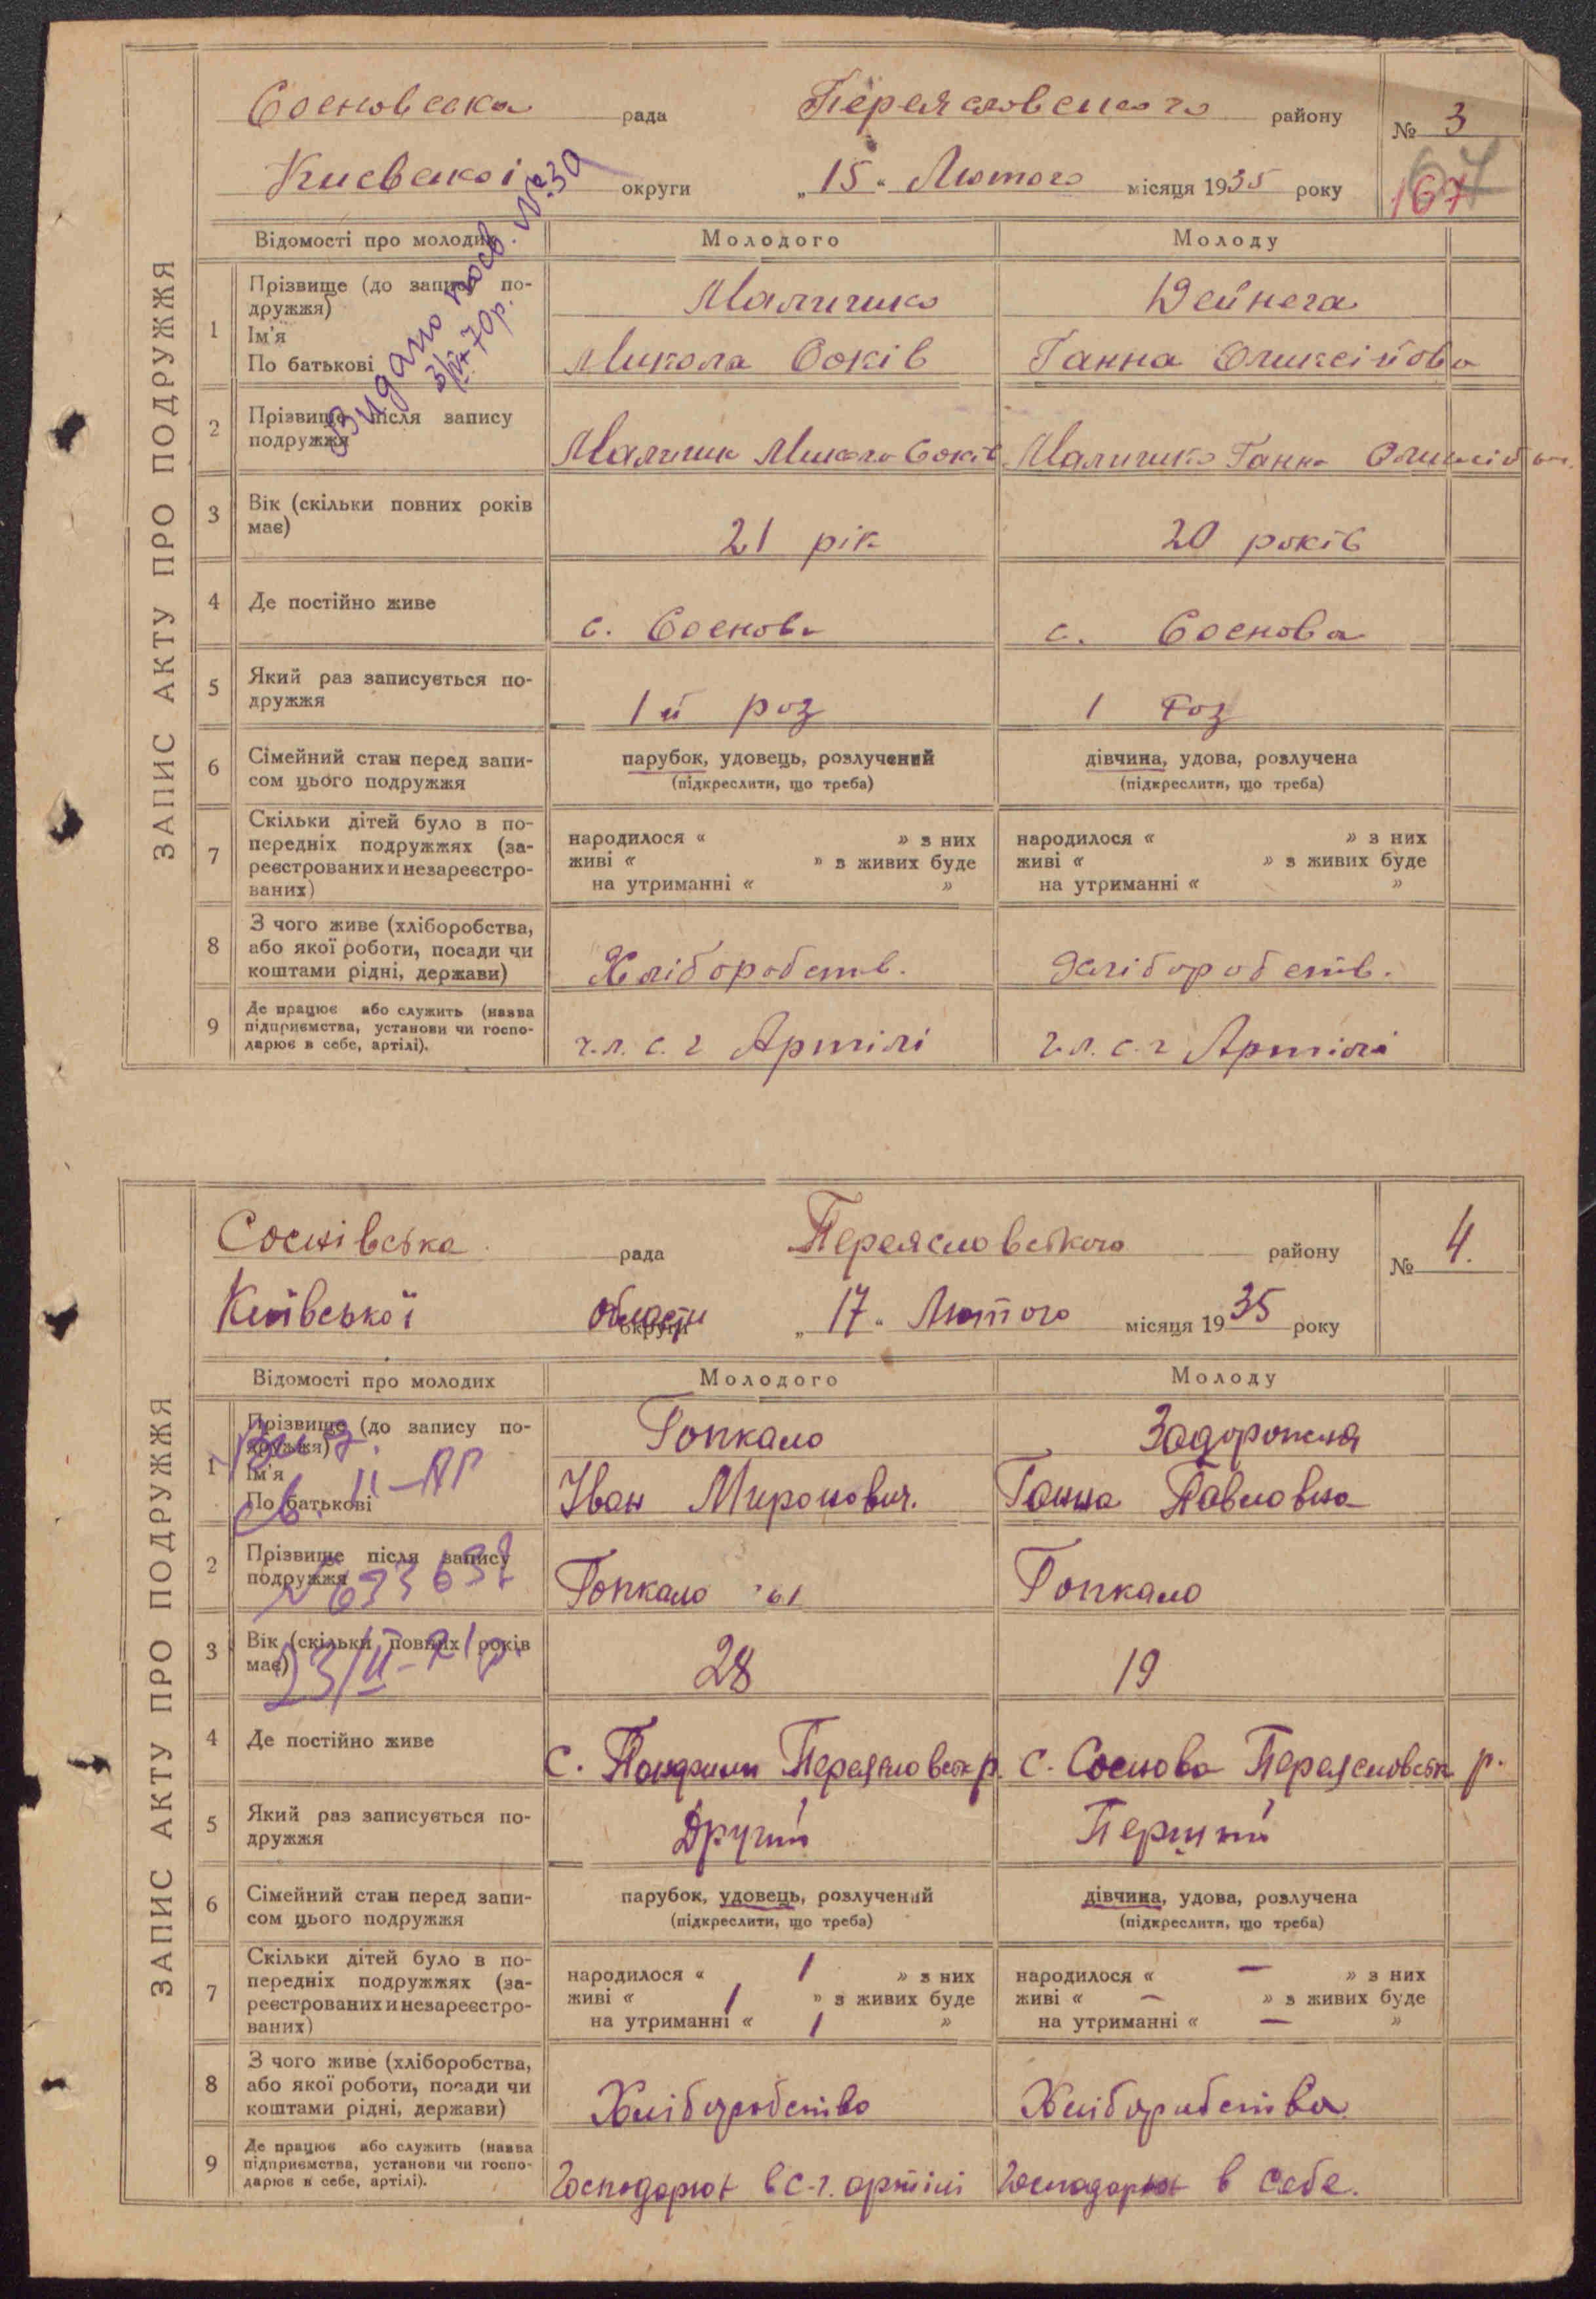 ЗАПИС АКТУ ПРО ПОДРУЖЖЯ
Сосновська рада Переясловського району № 3
Киевskoі округи „15“ Лютого місяця 1935 року 167
Видано посв. № 30
70р.
Відомості про молодих Молодого Молоду
1 Прізвище (до запису подружжя) Маличко Дейнега
Ім'я
По батькові Микола Соків Ганна Оликсійова
2 Прізвище після запису
подружжя Маличик Микола Соків Маличико Ганна
3 Вік (скільки повних років
має) 21 рік 20 років
4 Де постійно живе с. Соснова с. Соснова
5 Який раз записується по-
дружжя 1й роз 1 роз
6 Сімейний стан перед запи-
сом цього подружжя парубок, удовець, розлучений дівчина, удова, розлучена
(підкреслити, що треба) (підкреслити, що треба)
7 Скільки дітей було в по-
передніх подружжях (за-
реєстрованих и незареєстро-
ваних) народилося « » з них народилося « » з них
живі « » з живих буде живі « » з живих буде
на утриманні « » на утриманні « »
8 З чого живе (хліборобства,
або якої роботи, посади чи
коштами рідні, держави) Хліборобств. Хліборобств.
9 Де працює або служить (назва
підприємства, установи чи госпо-
дарює в себе, артілі). ч.л. с. г Артілі ч.л. с. г Артілі
ЗАПИС АКТУ ПРО ПОДРУЖЖЯ
Соснівська рада Переясловського району № 4.
Київської області округи „17“ Лютого місяця 1935 року
Відомості про молодих Молодого Молоду
1 Прізвище (до запису по-
дружжя) Гопкало Задорожня
Ім'я
По батькові Іван Миронович. Ганна Павловна
II-АР
2 Прізвище після запису
подружжя Гопкало Гопкало
№ 633637
3 Вік (скільки повних років
має) 28 19
23/II-71р.
4 Де постійно живе с. Переясловськ р. с. Соснова Переясловськ р.
5 Який раз записується по-
дружжя Другий Перший
6 Сімейний стан перед запи-
сом цього подружжя парубок, удовець, розлучений дівчина, удова, розлучена
(підкреслити, що треба) (підкреслити, що треба)
7 Скільки дітей було в по-
передніх подружжях (за-
реєстрованих и незареєстро-
ваних) народилося « 1 » з них народилося « — » з них
живі « 1 » з живих буде живі « — » з живих буде
на утриманні « 1 » на утриманні « — »
8 З чого живе (хліборобства,
або якої роботи, посади чи
коштами рідні, держави) Хліборобство Хліборобства
9 Де працює або служить (назва
підприємства, установи чи госпо-
дарює в себе, артілі). Господарює в с-г. артілі Господарює в себе.